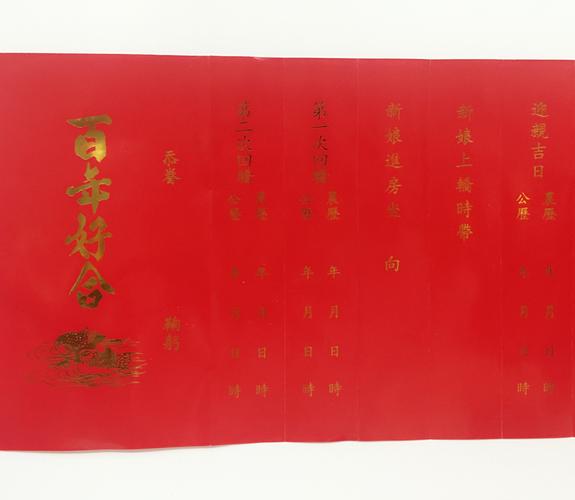 迎親吉日
農歷 年 月 日 時
公歷 年 月 日 時
新娘上轎時帶
新娘進房坐 向
第一次回
農歷 年 月 日 時
公歷 年 月 日 時
第二次回
農歷 年 月 日 時
公歷 年 月 日 時
忝眷 鞠躬
百年好合